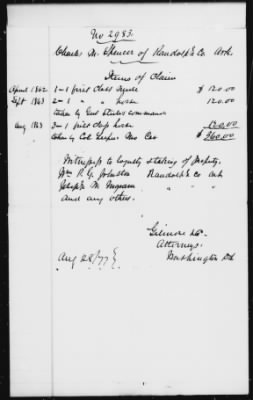 No 2983.
Charles M. Spencer of Randolph Co Ark.
Items of Claim
April 1862 1-1 first class $ 120.00
Sept 1863 2-1 " " horse 120.00
taken by Genl command
Aug 1863 3-1 first class horse 120.00
taken by Col Mo Cav $360.00
Witnesses to loyalty & taking of property.
Wm R. G. Johnston Randolph Co Ark
Joseph M. Ingram " "
and any others.
Gilmore & Co.
Attorneys.
Washington D.C.
Aug 22/77